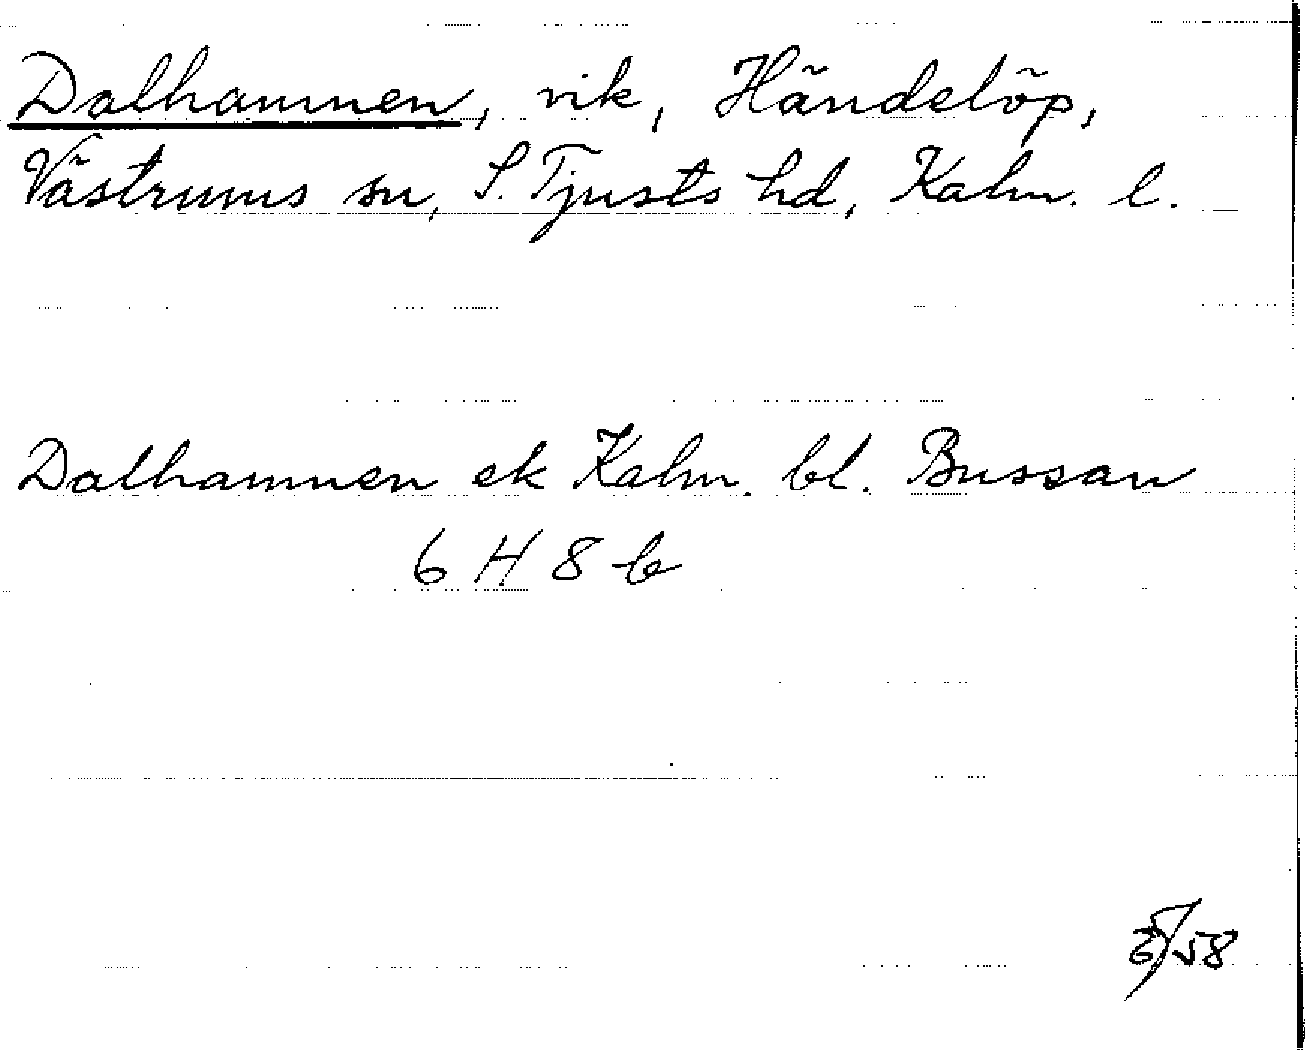 Dalhamnen, vik, Händelöp,
Västrums sn, S. Tjusts hd, Kalm. l.
Dalhamnen ek Kalm. bl. Bussan
6 H 8 b